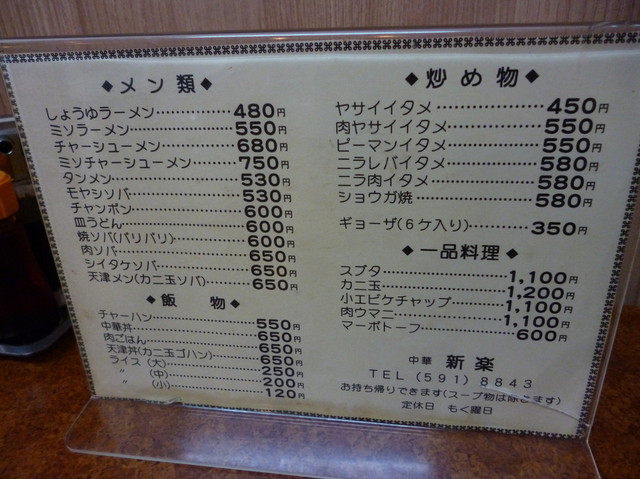 ◆メン類◆
しょうゆラーメン………………480円
ミソラーメン………………550円
チャーシューメン………………680円
ミソチャーシューメン………………750円
タンメン………………530円
モヤシソバ………………530円
チャンポン………………600円
皿うどん………………600円
焼ソバ(パリパリ)………………600円
肉ソバ………………650円
シイタケソバ………………650円
天津メン(カニ玉ソバ)………………650円
◆飯 物◆
チャーハン………………550円
中華丼………………650円
肉ごはん………………650円
天津丼(カニ玉ゴハン)………………650円
ライス(大)………………250円
〃 (中)………………200円
〃 (小)………………120円
◆炒め物◆
ヤサイイタメ………………450円
肉ヤサイイタメ………………550円
ピーマンイタメ………………550円
ニラレバイタメ………………580円
ニラ肉イタメ………………580円
ショウガ焼………………580円
ギョーザ(6ケ入り)………………350円
◆一品料理◆
スブタ………………1,100円
カニ玉………………1,200円
小エビケチャップ………………1,100円
肉ウマニ………………1,100円
マーボトーフ………………600円
中華 新楽
TEL(591)8843
お持ち帰りできます(スープ物は除きます)
定休日 もく曜日